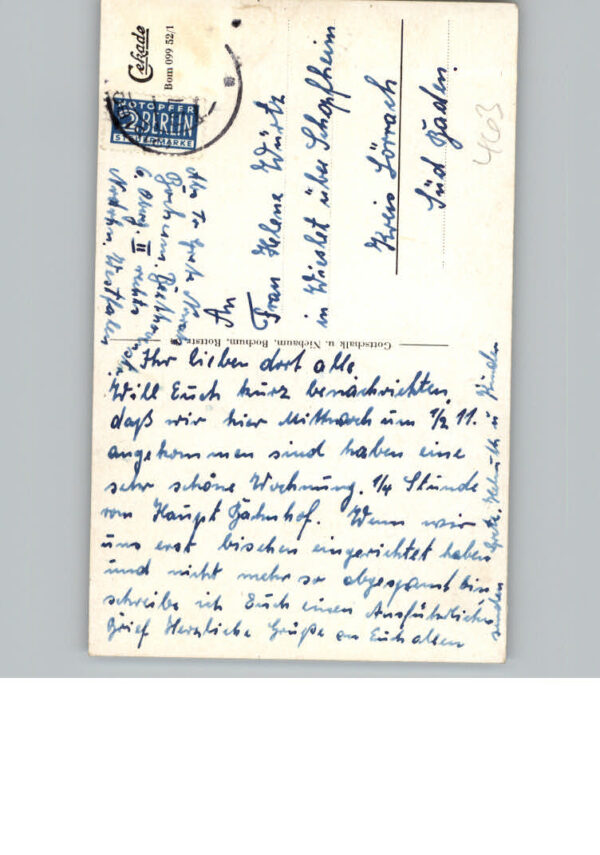 Cekade
Bom 099 52/1
NOTOPFER
2 BERLIN
STEUERMARKE
Bochum
II rechts
Westfalen
An
Frau Helene Würtz
in Wieslet über Schopfheim
Kreis Lörrach
Süd Baden.
463
Gottschalk u. Niebaum, Bochum, Rottstr.
Ihr lieben dort alle
Will Euch kurz benachrichten,
daß wir hier Mittwoch um 1/2 11.
angekommen sind haben eine
sehr schöne Wohnung. 1/4 Stunde
vom Haupt Bahnhof. Wenn wir
uns erst bischen eingerichtet haben
und nicht mehr so abgespannt bin
schreibe ich Euch einen Ausführlichen
Brief Herzliche Grüße an Euch allen
senden Helmuth u Kinder